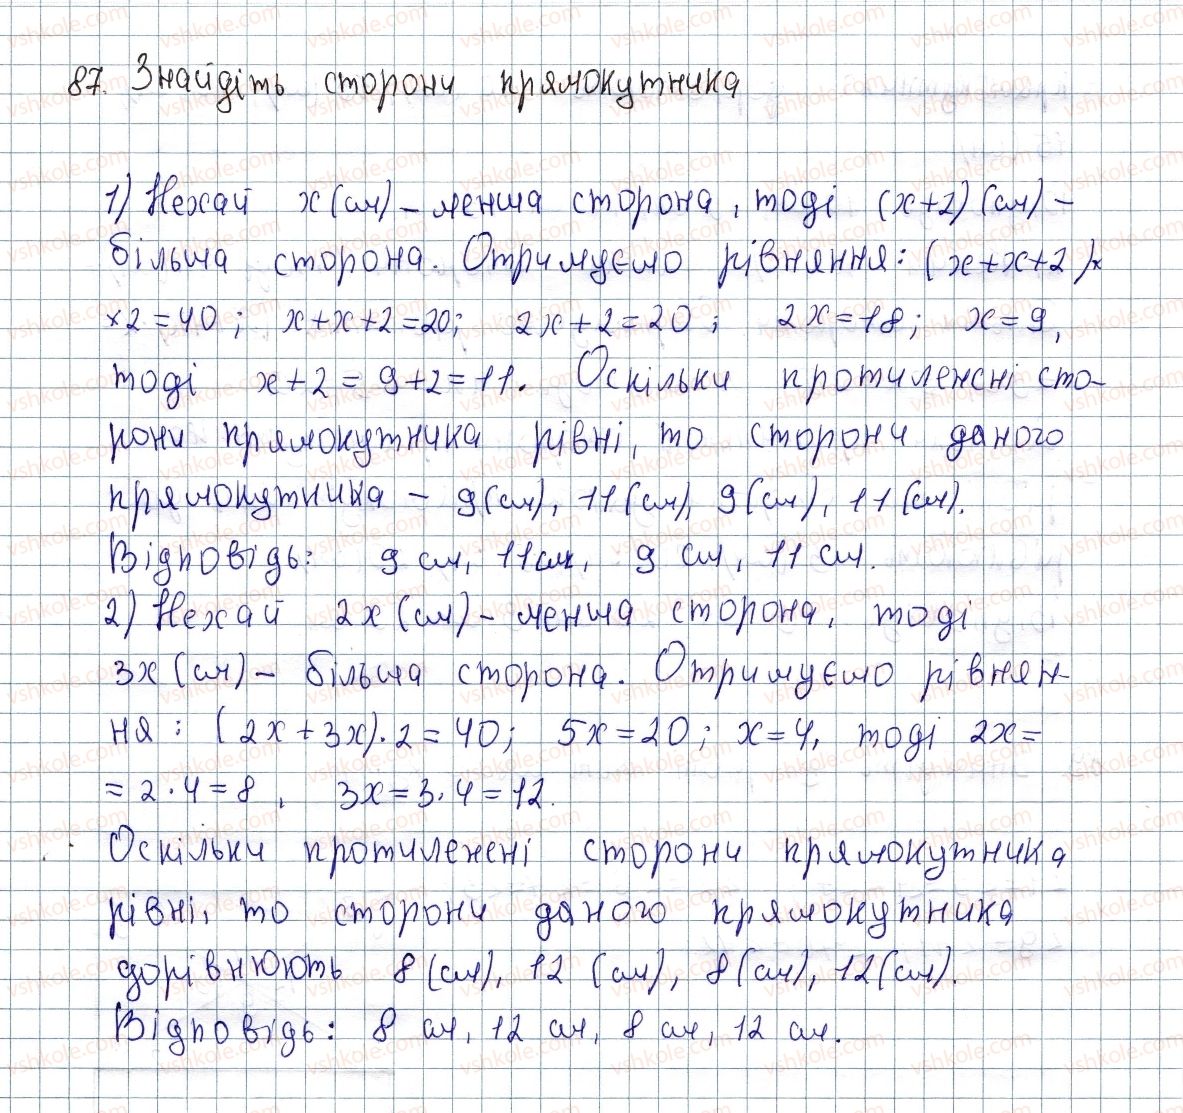 87. Знайдіть сторони прямокутника
1) Нехай x (см) – менша сторона, тоді (x+2) (см) –
більша сторона. Отримуємо рівняння: (x+x+2)×
×2=40; x+x+2=20; 2x+2=20; 2x=18; x=9,
тоді x+2=9+2=11. Оскільки протилежні сто-
рони прямокутника рівні, то сторони даного
прямокутника – 9(см), 11(см), 9(см), 11(см).
Відповідь: 9 см, 11см, 9 см, 11 см.
2) Нехай 2x (см) – менша сторона, тоді
3x (см) – більша сторона. Отримуємо рівнян-
ня: (2x+3x)·2=40; 5x=20; x=4, тоді 2x=
=2·4=8, 3x=3·4=12.
Оскільки протилежні сторони прямокутника
рівні, то сторони даного прямокутника
дорівнюють 8 (см), 12 (см), 8(см), 12(см).
Відповідь: 8 см, 12 см, 8 см, 12 см.